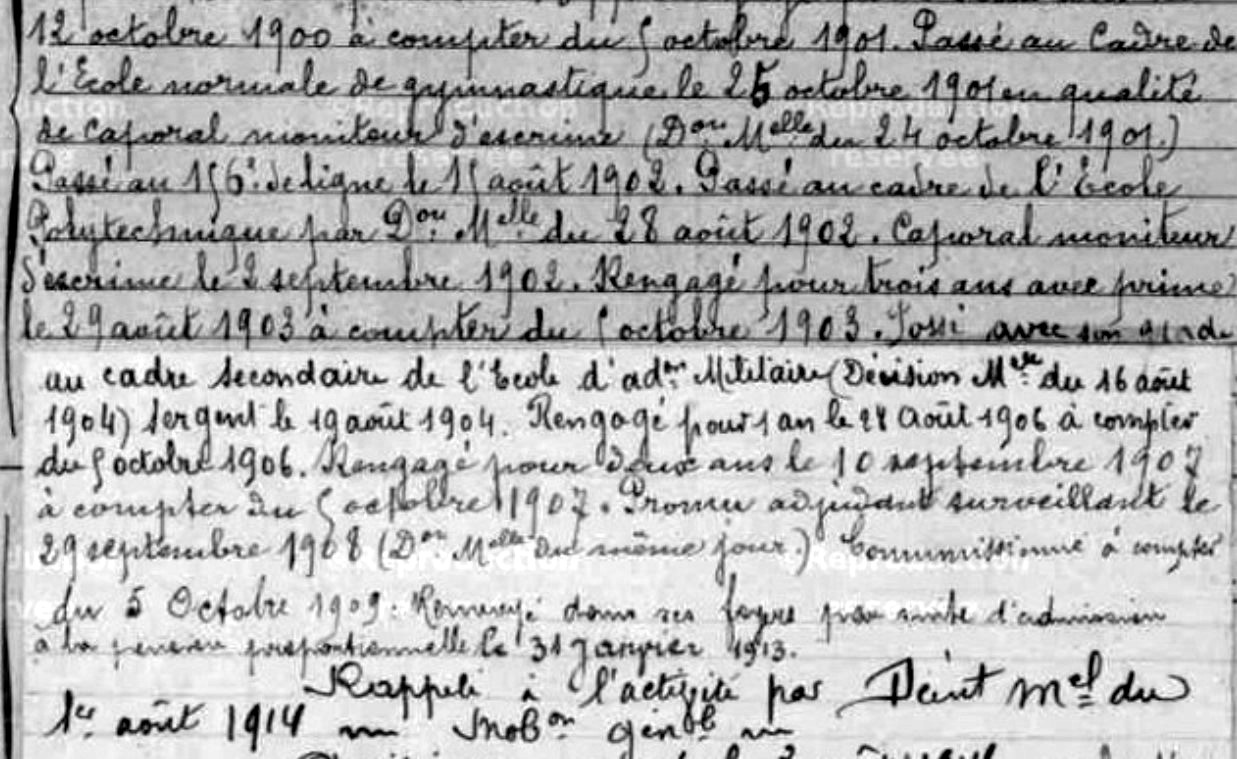 12 octobre 1900 à compter du 5 octobre 1901. Passé au Cadre de
l'Ecole normale de gymnastique le 25 octobre 1901 en qualité
de Caporal moniteur d'escrime (Don Melle du 24 octobre 1901.)
Passé au 156e de ligne le 15 août 1902. Passé au cadre de l'Ecole
Polytechnique par Don Melle du 28 août 1902. Caporal moniteur
d'escrime le 2 septembre 1902. Rengagé pour trois ans avec prime
le 29 août 1903 à compter du 5 octobre 1903. Passé avec son grade
au cadre secondaire de l'Ecole d'adon Militaire (Décision Melle du 16 août
1904) Sergent le 19 août 1904. Rengagé pour 1 an le 28 Août 1906 à compter
du 5 octobre 1906. Rengagé pour deux ans le 10 septembre 1907
à compter du 5 octobre 1907. Promu adjudant surveillant le
29 septembre 1908 (Don Melle du même jour.) Commissionné à compter
du 5 Octobre 1909. Renvoyé dans ses foyers par suite d'admission
à la pension proportionnelle le 31 Janvier 1913.
Rappelé à l'activité par Décret mel du
1er août 1914 Mobon génle